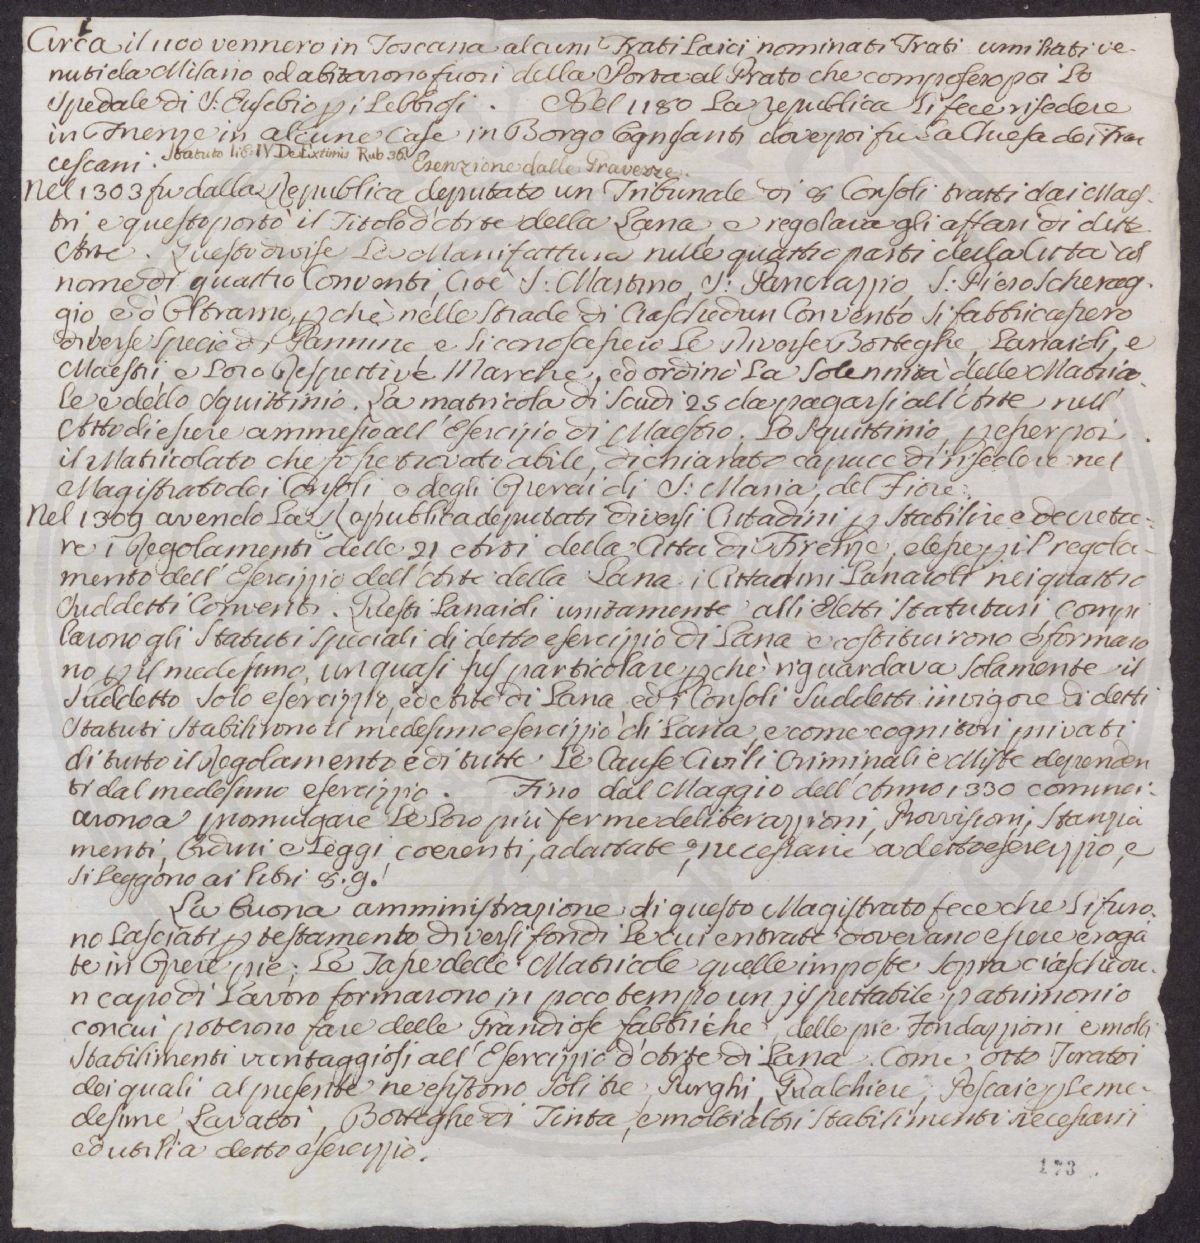 Circa il 1100 vennero in Toscana alcuni Frati Laici nominati Frati umiliati ve-
nuti da Milano ed abitarono fuori della Porta al Prato che composero poi Lo
Spedale di S. Eusebio p i Lebbrosi. Nel 1180 La Republica li fece risedere
in Firenze in alcune Case in Borgo Ognisanti dove poi fu La Chiesa dei Fran
cescani. Statuto lib. IV De Extimis Rub 36. Esenzione dalle Gravezze.
Nel 1303 fu dalla Republica deputato un Tribunale di 8 Consoli tratti dai Maes-
tri e questo portò il Titolo d'Arte della Lana e regolava gli affari di dette
Arte. Questo divise Le Manifatture nelle quattro parti della Città col
nome di quattro Conventi, Cioè S: Martino, S: Pancrazzio S: Piero Scherag-
gio e d'Oltramo, p chè nelle Strade di Ciaschedun Convento si fabbricassero
diverse specie di Pannine e si conoscessero Le diverse Botteghe Lanaioli, e
Maestri e Loro Respettive Marche, ed ordinò La Solennità delle Matrico-
le e dello Squittinio. La matricola di Scudi 25 da pagarsi all'Arte nell'
Atto di essere ammesso all'Esercizio di Maestro. Lo Squittinio, p esser poi
il Matricolato che fosse trovato abile, dichiarato capace di risedere nel
Magistrato dei Consoli o degli Operai di S: Maria del Fiore.
Nel 1309 avendo La Republica deputati diversi Cittadini p stabilire e decreta-
re i Regolamenti delle 21 Arti della Città di Firenze, elesse p il regola-
mento dell'Esercizzio dell'Arte della Lana i Cittadini Lanaioli nei quattro
Suddetti Conventi. Questi Lanaioli unitamente alli Eletti Statutari compi
larono gli Statuti speciali di detto esercizzio di Lana e costituirono e formaro
no p il medesimo, un quasi jus particolare p chè riguardava solamente il
suddetto solo esercizzio, ed Arte di Lana ed i Consoli Suddetti in vigore di detti
Statuti stabilirono il medesimo esercizzio di Lana, e come cognitori privati
di tutto il Regolamento e di tutte Le Cause Civili Criminali e Miste dependen
ti dal medesimo esercizzio. Fino dal Maggio dell'Anno 1330 cominci-
arono a promulgare Le Loro più ferme deliberazzioni, Provvisioni, Stanzia
menti, Ordini e Leggi, coerenti, adattate e necessarie a detto esercizzio, e
si Leggono ai Libri 8. 9.
La buona amministrazione di questo Magistrato fece che li furo-
no Lasciati p testamento diversi fondi Le cui entrate dovevano essere eroga
te in Opere pie; Le Tasse delle Matricole quelle imposte sopra ciaschedu-
n capo di Lavoro formarono in poco tempo un rispettabile patrimonio
con cui poterono fare delle Grandiose fabbriche, delle pie Fondazzioni e molti
stabilimenti vantaggiosi all'Esercizzio d'Arte di Lana. Come otto Tiratoi
dei quali al presente ne esistono soli tre, Purghi, Gualchiere, Pescaie p Le me-
desime, Lavatoi, Botteghe di Tinta, e molti altri stabilimenti necessari
ed utili a detto esercizzio.
173